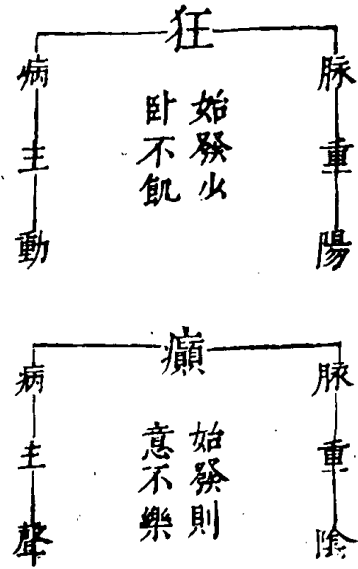 狂
脉重陽
始發少
卧不飢
病主動
癲
脉重陰
始發則
意不樂
病主聲